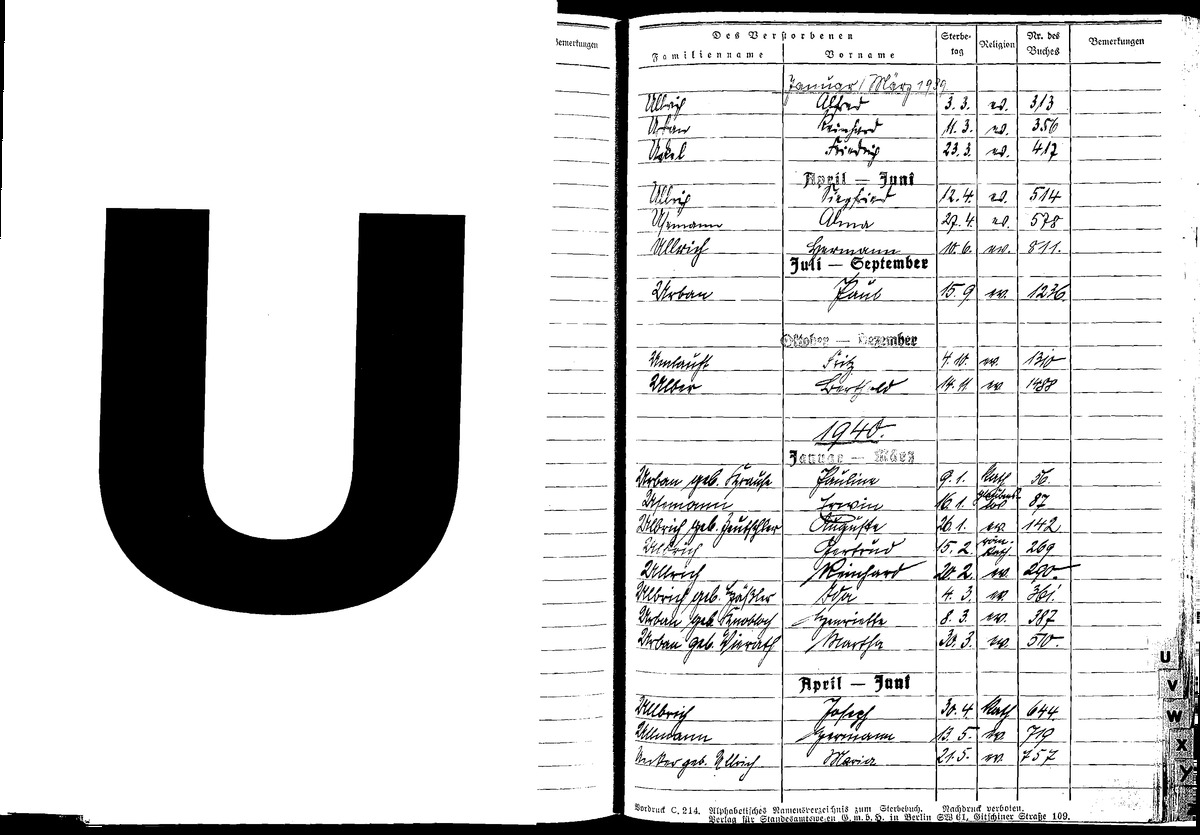 U
Bemerkungen
Des Verstorbenen
Familienname Vorname Sterbe-tag Religion Nr. des Buches Bemerkungen
Januar/März 1939
Ullrich Alfred 3.3. ev. 313
Urban Reinhard 11.3. ev. 356
Friedrich 23.3. ev. 417
April — Juni
Ullrich Siegfried 12.4. ev. 514
Usemann Alma 27.4. ev. 578
Ullrich Hermann 10.6. ev. 811.
Juli — September
Urban Paul 15.9 ev. 1236
Oktober — Dezember
Umlauft Fritz 4.10. ev. 1310
Ulber Berthold 14.11 ev 1488
1940.
Januar — März
Urban geb. Krause Pauline 9.1. Kath 56.
Usemann Erwin 16.1. 87
Ulbrich geb. Auguste 26.1. ev. 142
Ulbrich Gertrud 15.2. röm.-Kath 269
Ullrich Reinhard 20.2. ev. 290
Ulbrich geb. Häßler Ida 4.3. ev. 361.
Urban geb. Knobloch Henriette 8.3. ev. 387
Urban geb. Vierath Martha 30.3. ev. 510.
April — Juni
Ullbrich Joseph 30.4 Kath 644.
Ullmann Hermann 13.5. ev 719
geb. Ullrich Maria 21.5. ev. 757
U
V
W
X
Y
Vordruck C. 214. Alphabetisches Namensverzeichnis zum Sterbebuch. Nachdruck verboten.
Verlag für Standesamtswesen G.m.b.H. in Berlin SW 61, Gitschiner Straße 109.